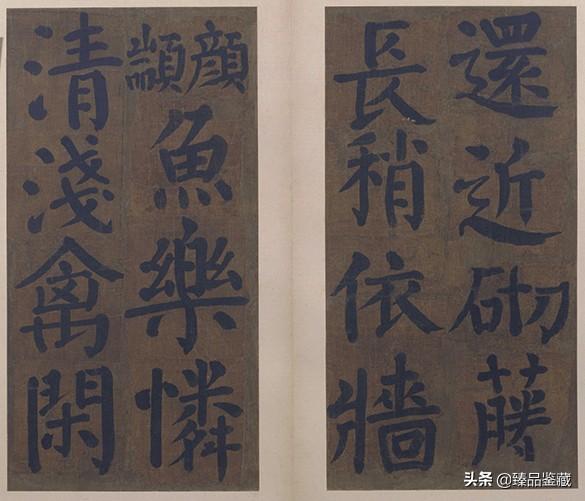 還近砌藤
長稍依牆
顏顓魚樂憐
清淺禽閑
头条 @臻品鉴藏